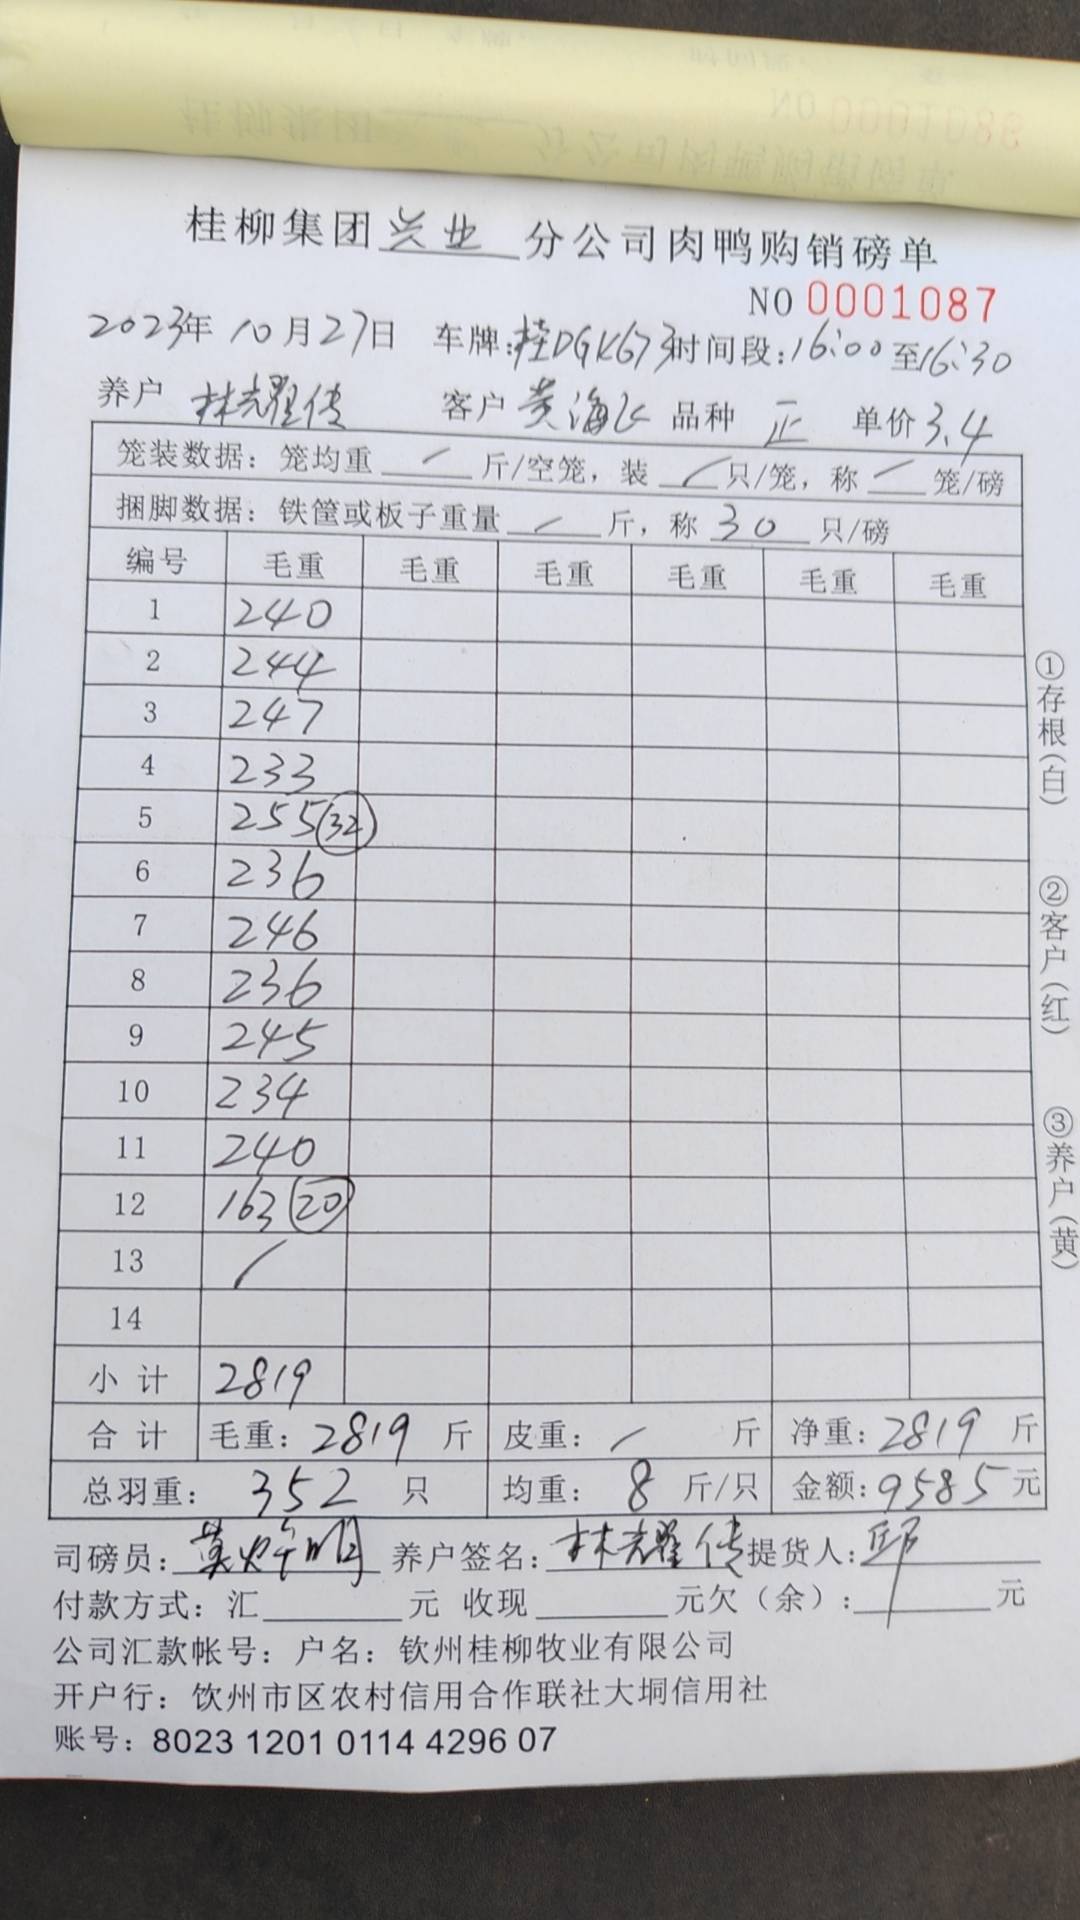 桂柳集团兴业分公司肉鸭购销磅单
NO 0001087
2023年10月27日 车牌:桂DGK673 时间段:16:00至16:30
养户 林耀传 客户 黄海飞 品种 正 单价3.4
笼装数据：笼均重 / 斤/空笼，装 / 只/笼，称 / 笼/磅
捆脚数据：铁筐或板子重量 / 斤，称 30 只/磅
编号 毛重 毛重 毛重 毛重 毛重 毛重
1 240
2 244
3 247
4 233
5 255 32
6 236
7 246
8 236
9 245
10 234
11 240
12 163 20
13 /
14
小计 2819
合计 毛重：2819 斤 皮重：/ 斤 净重：2819 斤
总羽重：352 只 均重：8 斤/只 金额：9585元
司磅员: 养户签名:林耀传 提货人:邱
付款方式：汇 元 收现 元欠（余）: 元
公司汇款帐号：户名：钦州桂柳牧业有限公司
开户行：饮州市区农村信用合作联社大垌信用社
账号：8023 1201 0114 4296 07
①存根(白)
②客户(红)
③养户(黄)